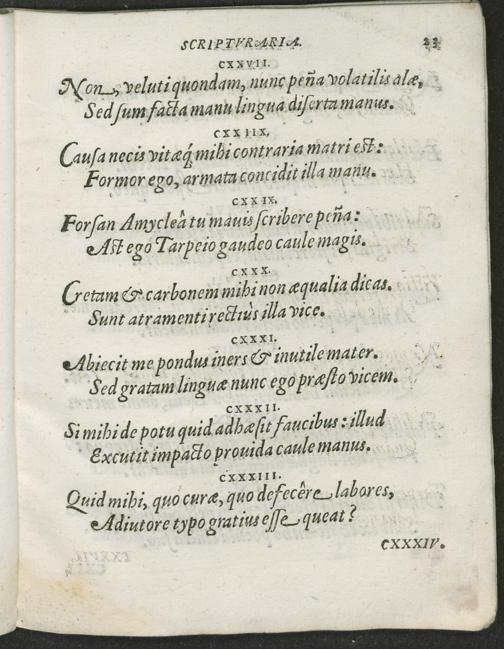 SCRIPTVRARIA. 23
CXXVII.
Non, veluti quondam, nunc peña volatilis alæ,
Sed sum facta manu lingua diserta manus.
CXXIIX.
Causa necis vitæq́ mihi contraria matri est:
Formor ego, armata concidit illa manu.
CXXIX.
Forsan Amycleâ tu mauis scribere peña:
Ast ego Tarpeio gaudeo caule magis.
CXXX.
Cretam & carbonem mihi non æqualia dicas.
Sunt atramenti rectius illa vice.
CXXXI.
Abiecit me pondus iners & inutile mater.
Sed gratam linguæ nunc ego præsto vicem.
CXXXII.
Si mihi de potu quid adhæsit faucibus: illud
Excutit impacto prouida caule manus.
CXXXIII.
Quid mihi, quo curæ, quo defecêre labores,
Adiutore typo gratius esse queat?
CXXXIV.